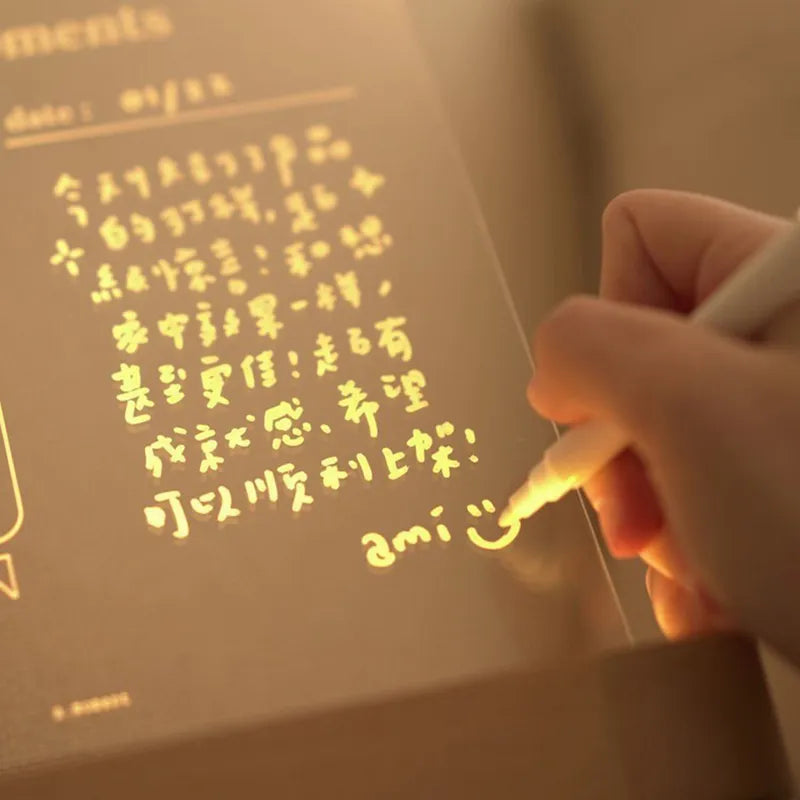 ments
date: 01/22
今天收到了產品
的打樣,超
級驚喜!和想
像中效果一樣,
甚至更佳!超有
成就感、希望
可以順利上架!
ami